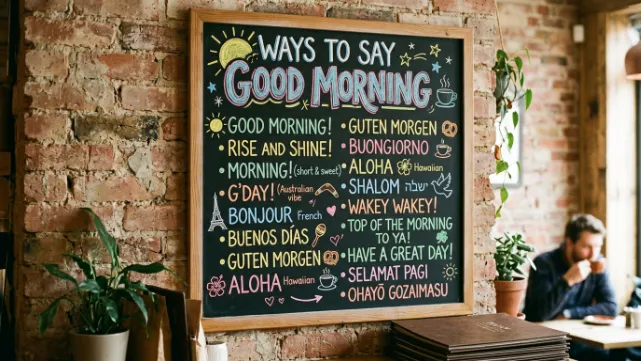 WAYS TO SAY
GOOD MORNING
GOOD MORNING!
RISE AND SHINE!
MORNING! (short & sweet)
G'DAY! (Australian
vibe
BONJOUR French
BUENOS DÍAS
GUTEN MORGEN
ALOHA Hawaiian
GUTEN MORGEN
BUONGIORNO
ALOHA Hawaiian
SHALOM
WAKEY WAKEY!
TOP OF THE MORNING
TO YA!
HAVE A GREAT DAY!
SELAMAT PAGI
OHAYŌ GOZAIMASU